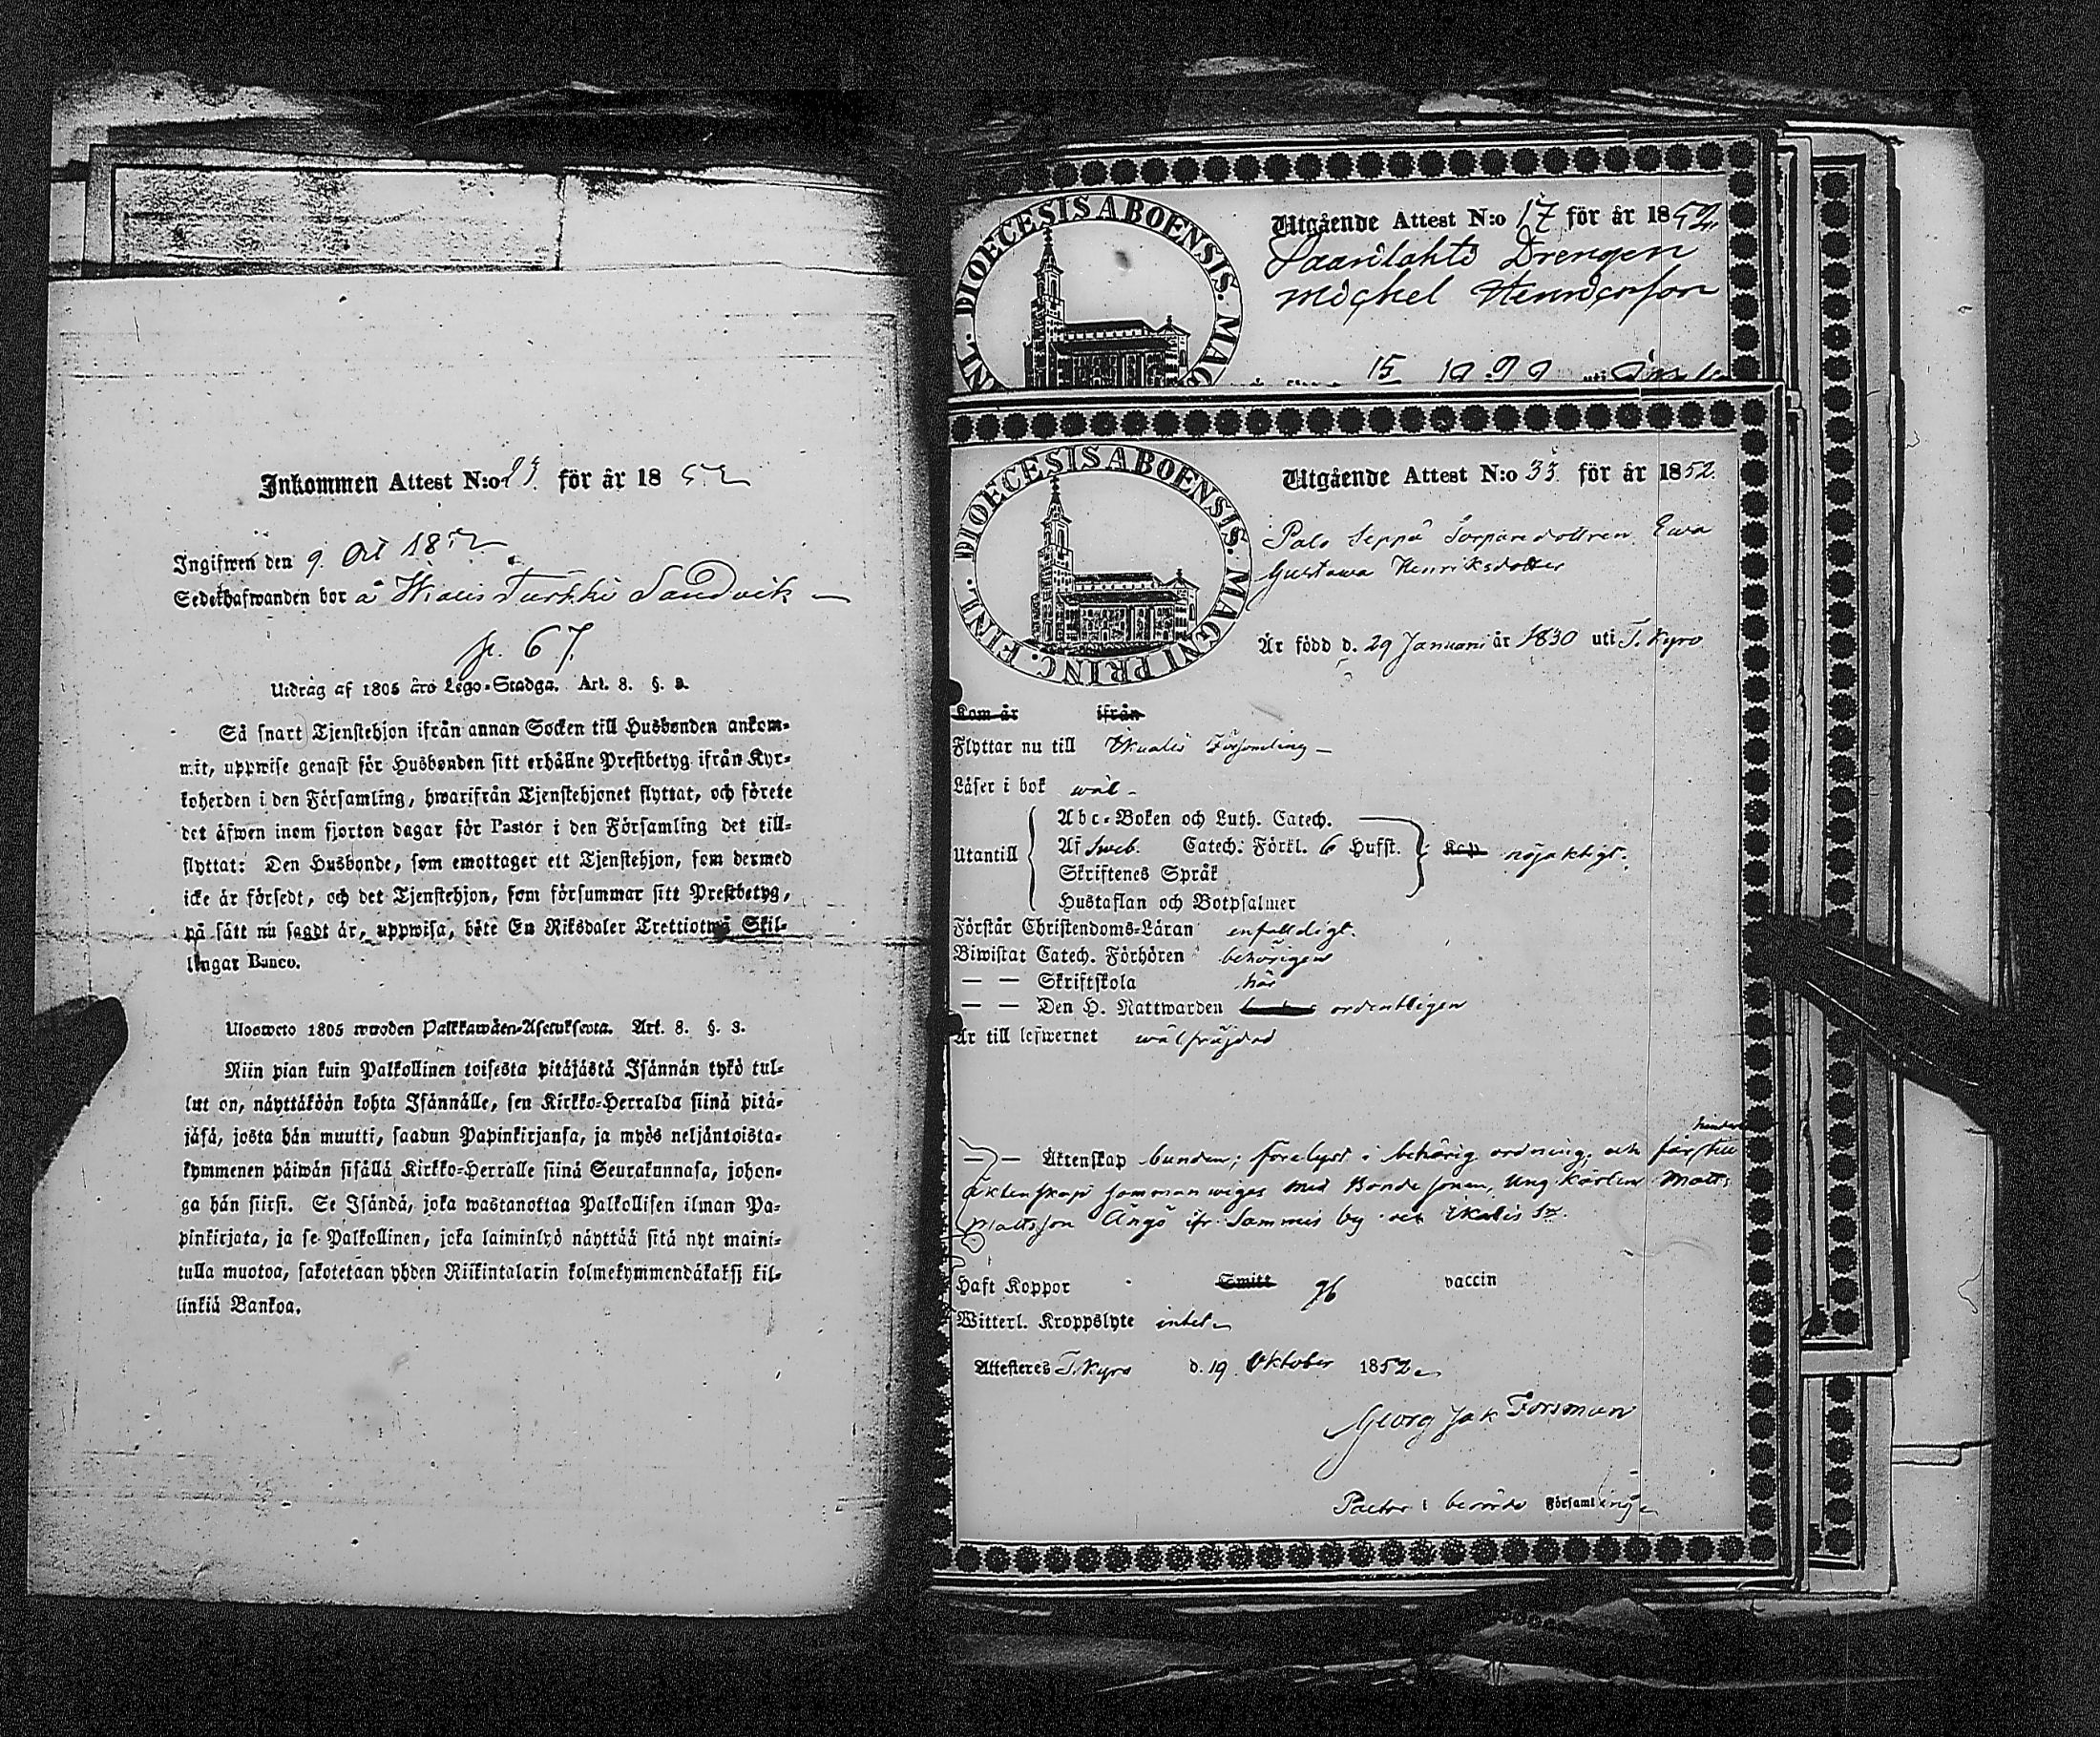 Inkommen Attest N:o för år 1852
Ingifwen den 9. Oct 1852
Sedelhafwanden bor å Sandvik
p. 67.
Utdrag af 1805 års Lego-Stadga. Art. 8. §. 3.
Så snart Tjenstehjon ifrån annan Socken till Husbonden ankom-
mit, uppwise genast för Husbonden sitt erhållne Prestbetyg ifrån Kyr-
koherden i den Församling, hwarifrån Tjenstehjonet flyttat, och förete
det äfwen inom fjorton dagar för Pastor i den Församling det till-
flyttat: Den Husbonde, som emottager ett Tjenstehjon, som dermed
icke är försedt, och det Tjenstehjon, som försummar sitt Prestbetyg,
på sätt nu sagdt är, uppwisa, böte En Riksdaler Trettiotwå Skil-
lingar Banco.
Ulosweto 1805 wuoden Palkkawäen-Asetuksesta. Art. 8. §. 3.
Niin pian kuin Palkollinen toisesta pitäjästä Isännän tykö tul-
lut on, näyttäköön kohta Isännälle, sen Kirkko-Herralda siinä pitä-
jäsä, josta hän muutti, saadun Papinkirjansa, ja myös neljäntoista-
kymmenen päiwän sisällä Kirkko-Herralle siinä Seurakunnasa, johon-
ga hän siirsi. Se Isändä, joka wastanottaa Palkollisen ilman Pa-
pinkirjata, ja se Palkollinen, joka laiminlyö näyttää sitä nyt maini-
tulla muotoa, sakotetaan yhden Riikintalarin kolmekymmendäkaksi kil-
linkiä Bankoa.
DIOECESIS ABOENSIS. MAG
INL.
Utgående Attest N:o 17 för år 1852.
Saarilahti Drengen
Michel Henricsson
15 uti
DIOECESIS ABOENSIS. MAGNI PRINC. FINL.
Utgående Attest N:o 33. för år 1852.
Palo Seppä Torparedottren Ewa
Gustawa Henriksdotter
Är född d. 29 Januari år 1830 uti T. Kyro
Kom år ifrån
Flyttar nu till Ikalis Församling –
Läser i bok wäl –
Abc-Boken och Luth. Catech.
Utantill Af Sweb. Catech. Förkl. 6 Hufst. nöjaktigt.
Skriftenes Språk
Hustaflan och Botpsalmer
Förstår Christendoms-Läran enfaldigt.
Biwistat Catech. Förhören behörigen
— — Skriftskola här
— — Den H. Nattwarden ordentligen
Är till lefwernet wälfräjdad
hinderl
— — Äktenskap bunden; förelyst i behörig ordning; och får till
äktenskap sammanwigas med Bonde sonen, Ung Karlen Matts
Mattsson Ängö ifr. Sammis by och Ikalis Sn.
Haft Koppor Smitt vaccin
Witterl. Kroppslyte intet
Attesteres T. Kyro d. 19 Oktober 1852
Georg Jak Forsman
Pastor i berörde Församling